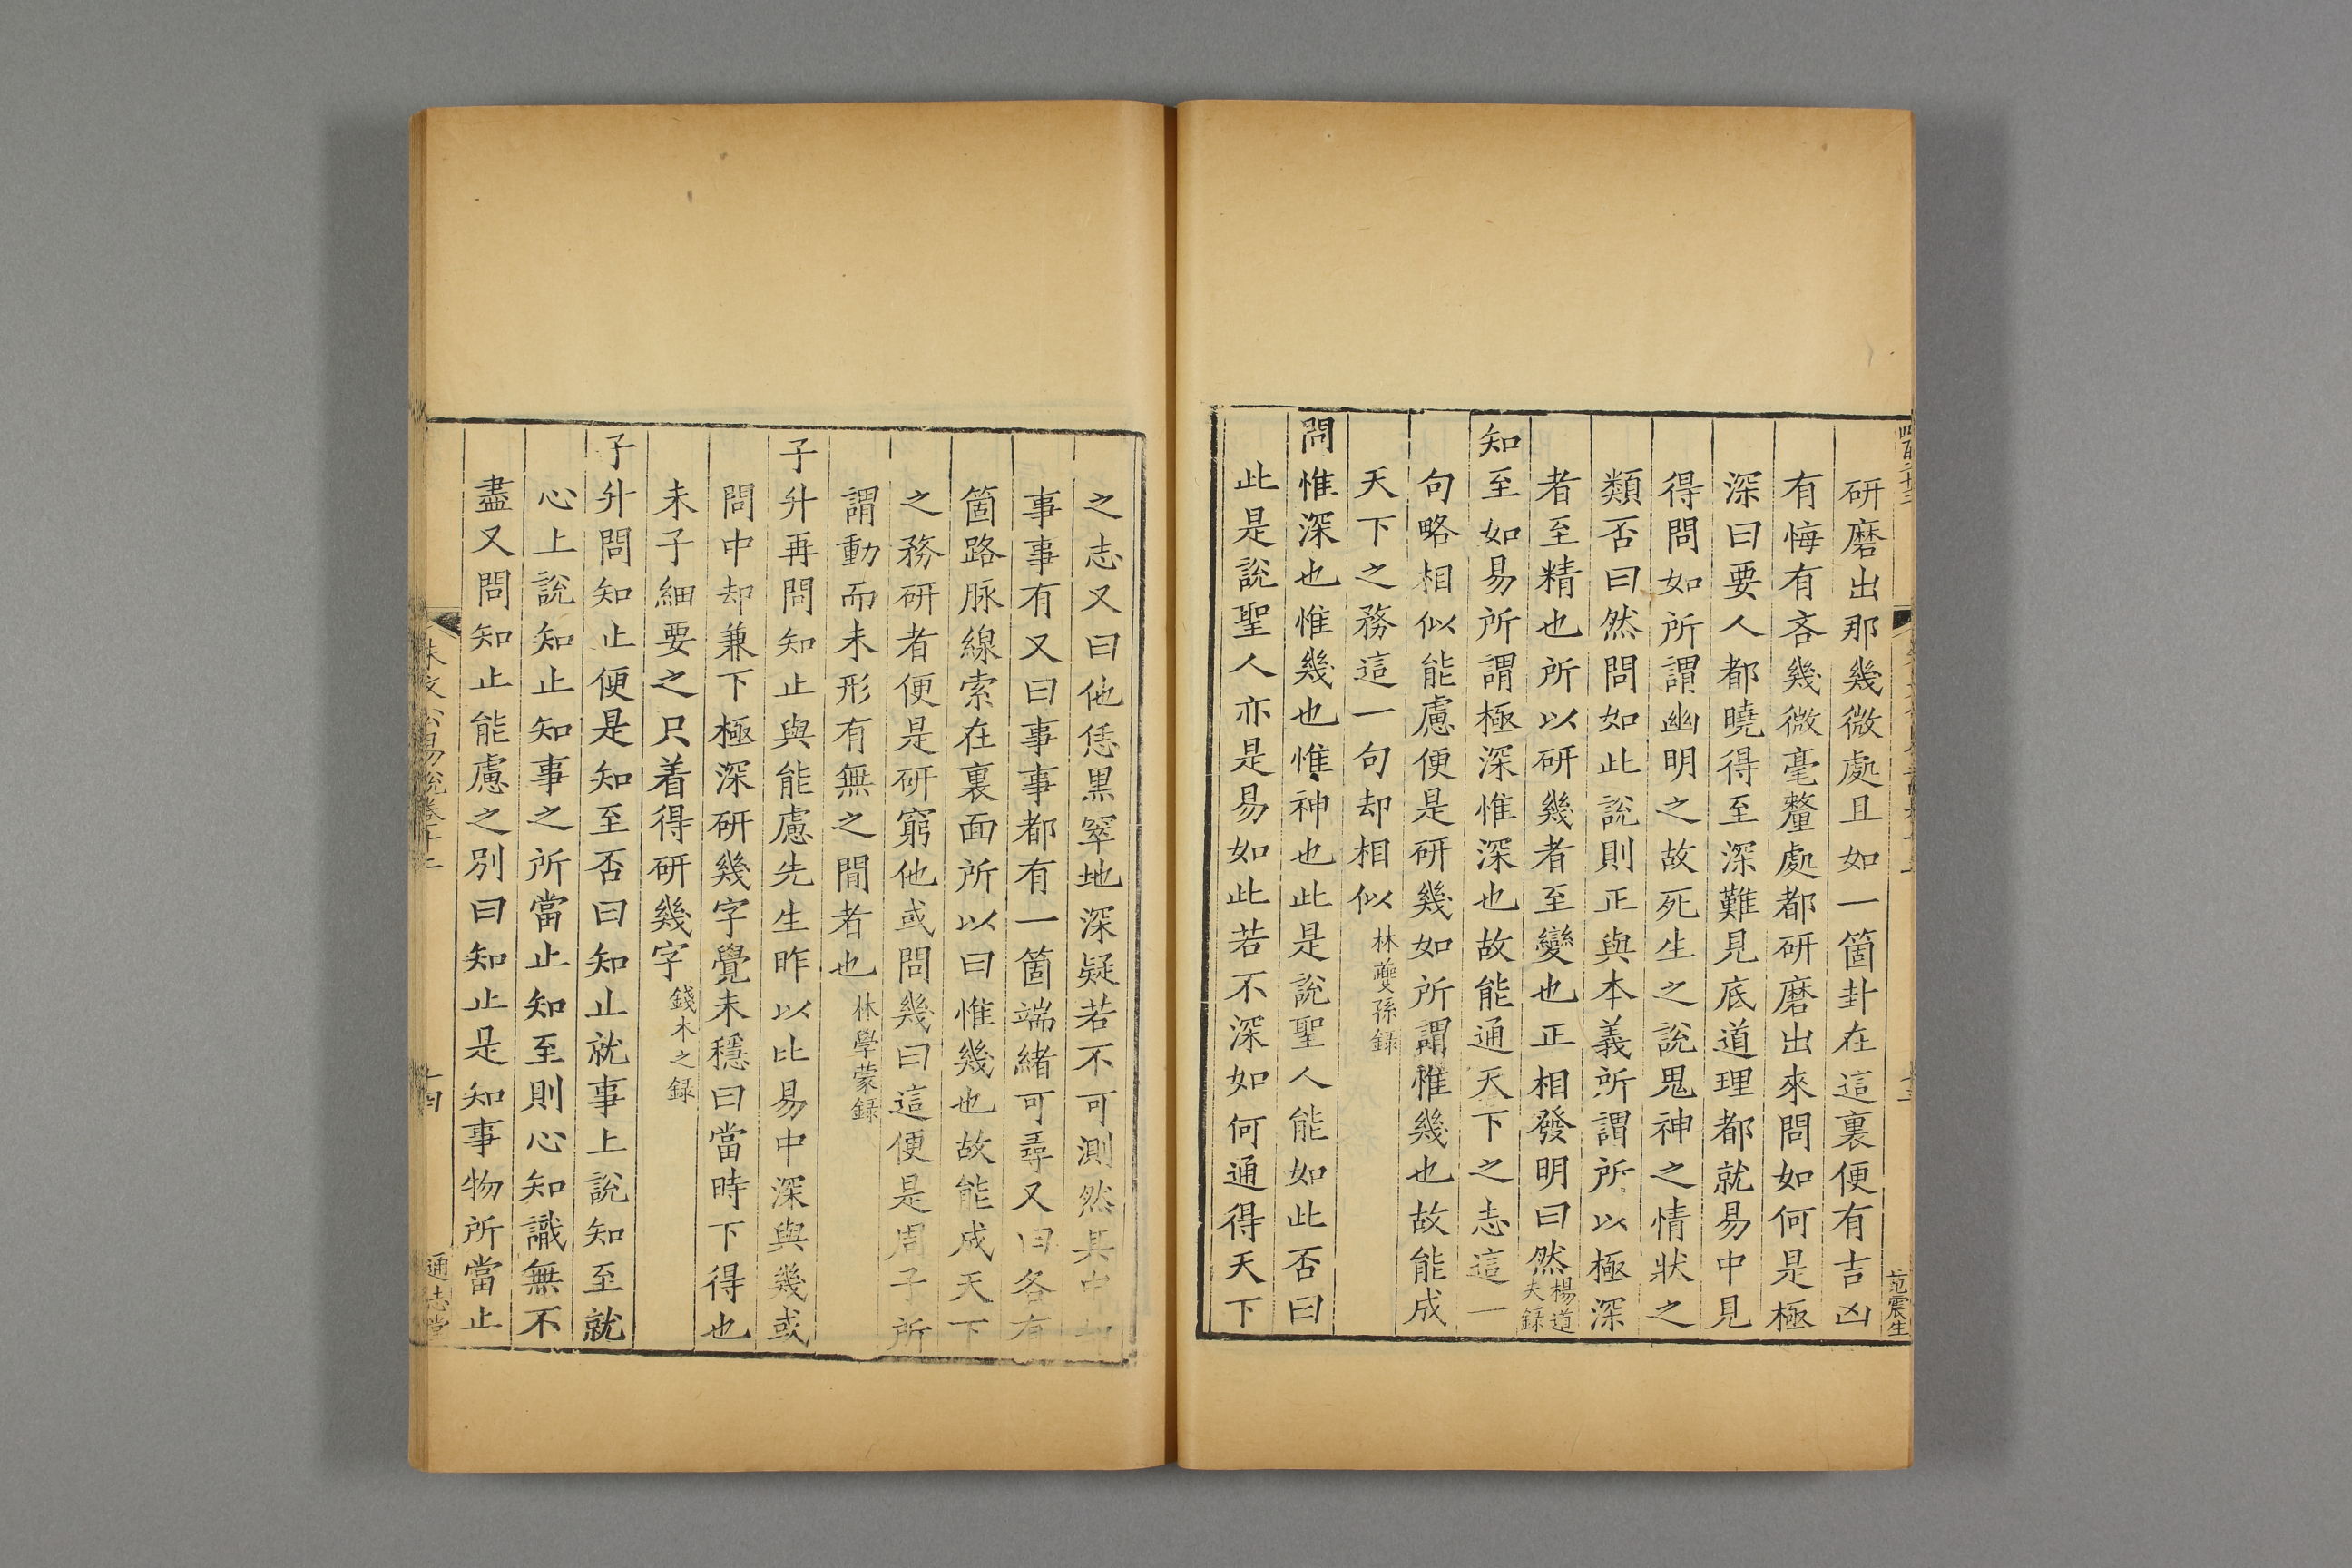 研磨出那幾微處且如一箇卦在這裏便有吉凶
有悔有吝幾微毫釐處都研磨出來問如何是極
深曰要人都曉得至深難見底道理都就易中見
得問如所謂幽明之故死生之說鬼神之情狀之
類否曰然問如此說則正與本義所謂所以極深
者至精也所以研幾者至變也正相發明曰然楊道夫録
知至如易所謂極深惟深也故能通天下之志這一
句略相似能慮便是研幾如所謂惟幾也故能成
天下之務這一句却相似林夔孫録
問惟深也惟幾也惟神也此是說聖人能如此否曰
此是說聖人亦是易如此若不深如何通得天下
范震生
之志又曰他恁黑窣地深疑若不可測然其中
事事有又曰事事都有一箇端緒可尋又曰各有
箇路脉線索在裏面所以曰惟幾也故能成天下
之務研者便是研窮他或問幾曰這便是周子所
謂動而未形有無之間者也林學蒙録
子升再問知止與能慮先生昨以比易中深與幾或
問中却兼下極深研幾字覺未穩曰當時下得也
未子細要之只着得研幾字錢木之録
子升問知止便是知至否曰知止就事上說知至就
心上說知止知事之所當止知至則心知識無不
盡又問知止能慮之別曰知止是知事物所當止
朱文公易說卷十二
十四
通志堂